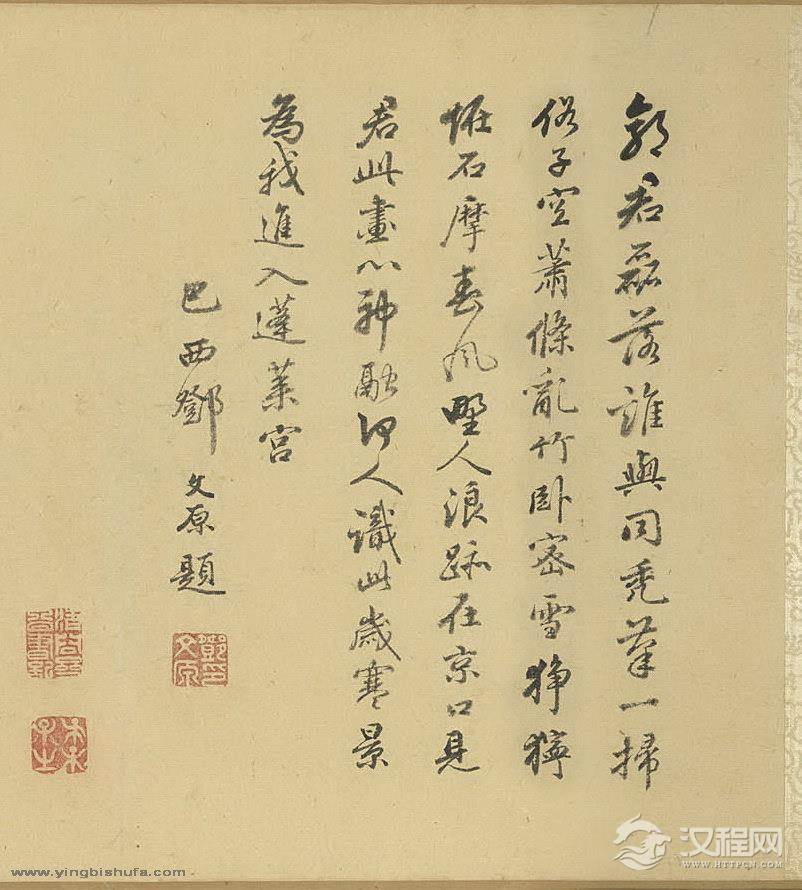 郭君磊落誰與同禿筆一掃
俗子空蕭條亂竹臥密雪猙獰
怪石摩春風野人浪跡在京口見
君此畫心神融何人識此歲寒景
為我進入蓬萊宮
巴西鄧文原題
鄧文原印
www.yingbishufa.com
汉程网
WWW.HTTPCN.COM